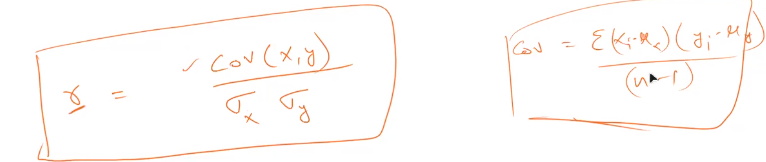 r = cov(x,y) / σx σy
cov = Σ(xi-μx)(yi-μy) / (n-1)